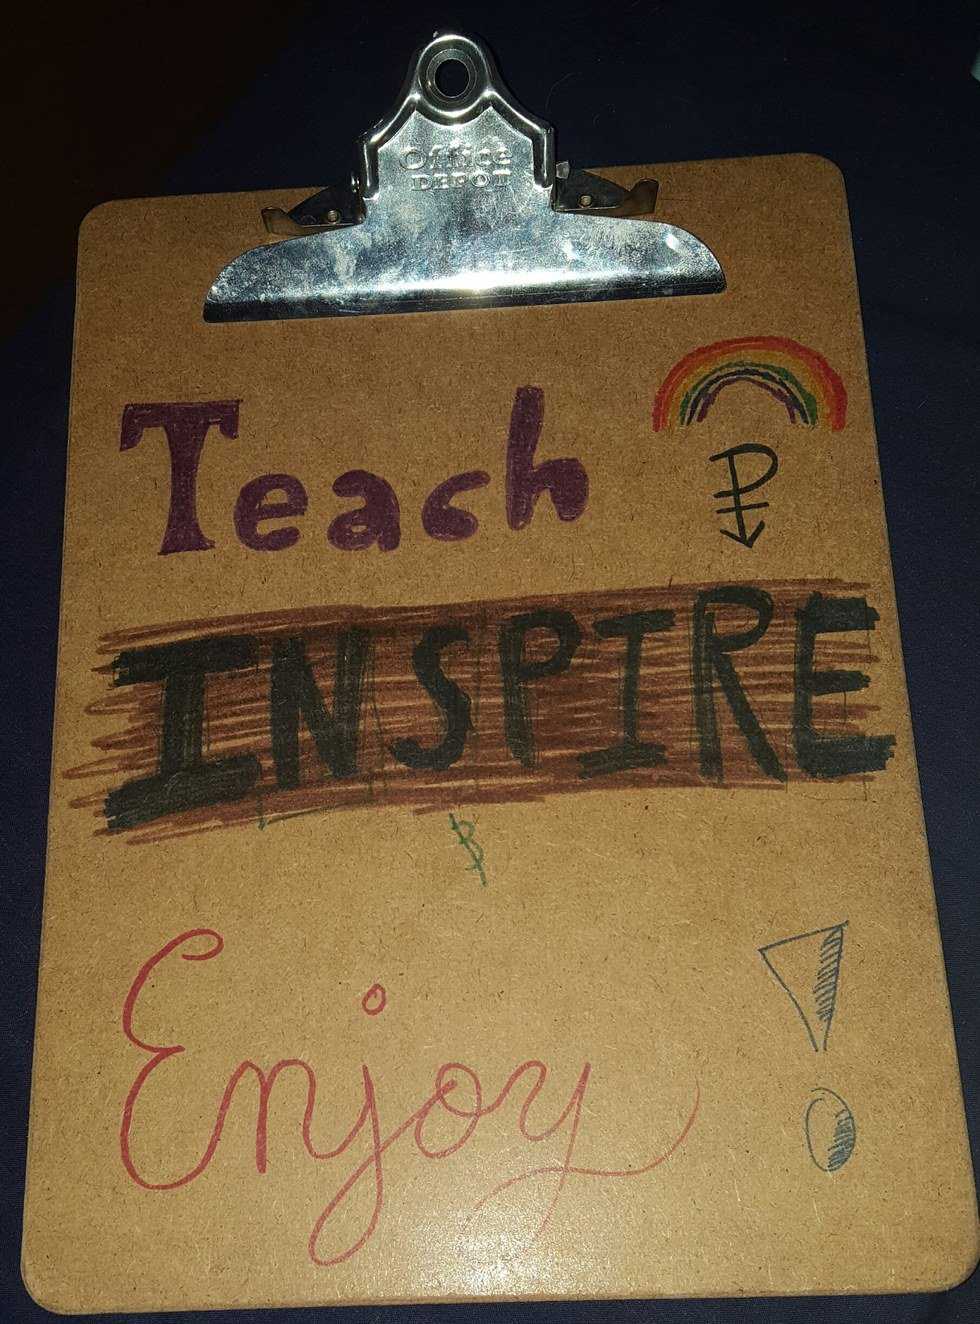 Office
DEPOT
Teach
INSPIRE
Enjoy!